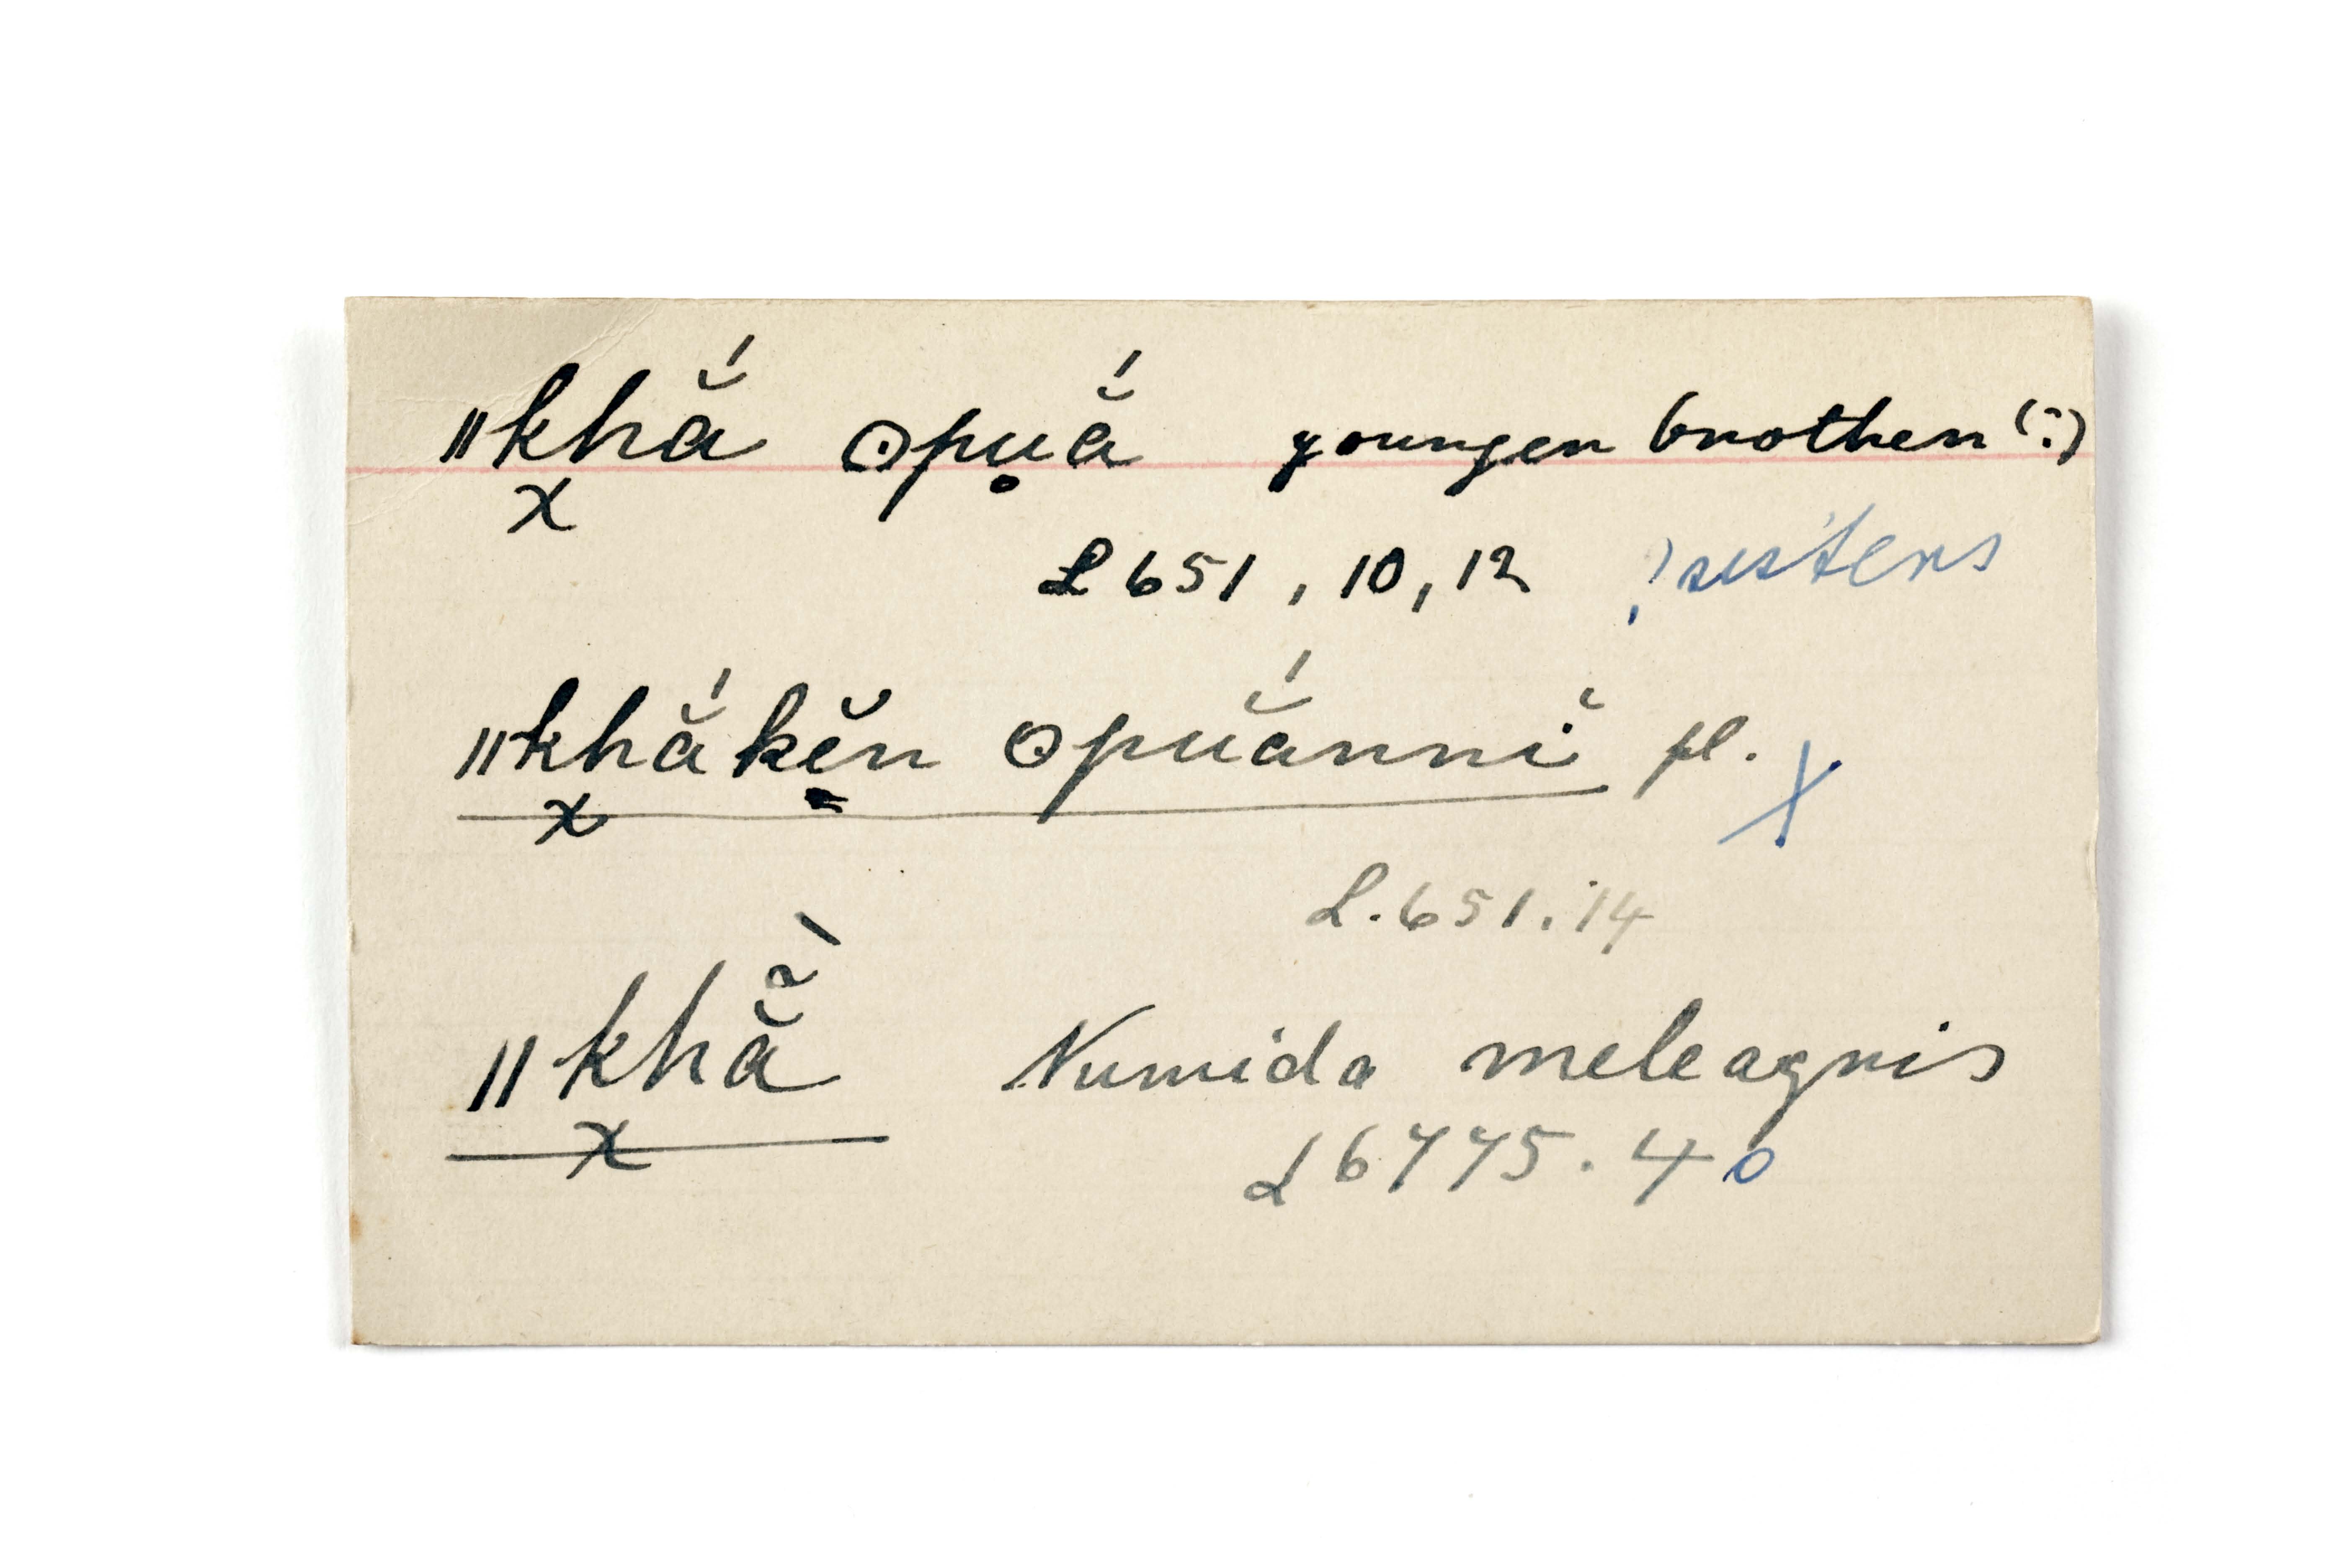 ǁkhắ ʘpu̥ắ younger brother (?)
x
L 651, 10, 12 ? sisters
ǁkhắkĕ̱n ʘpuắnnĭ pl. X
x
L. 651. 14
ǁkhẵ̀ Numida meleagris
x
L 6775. 40